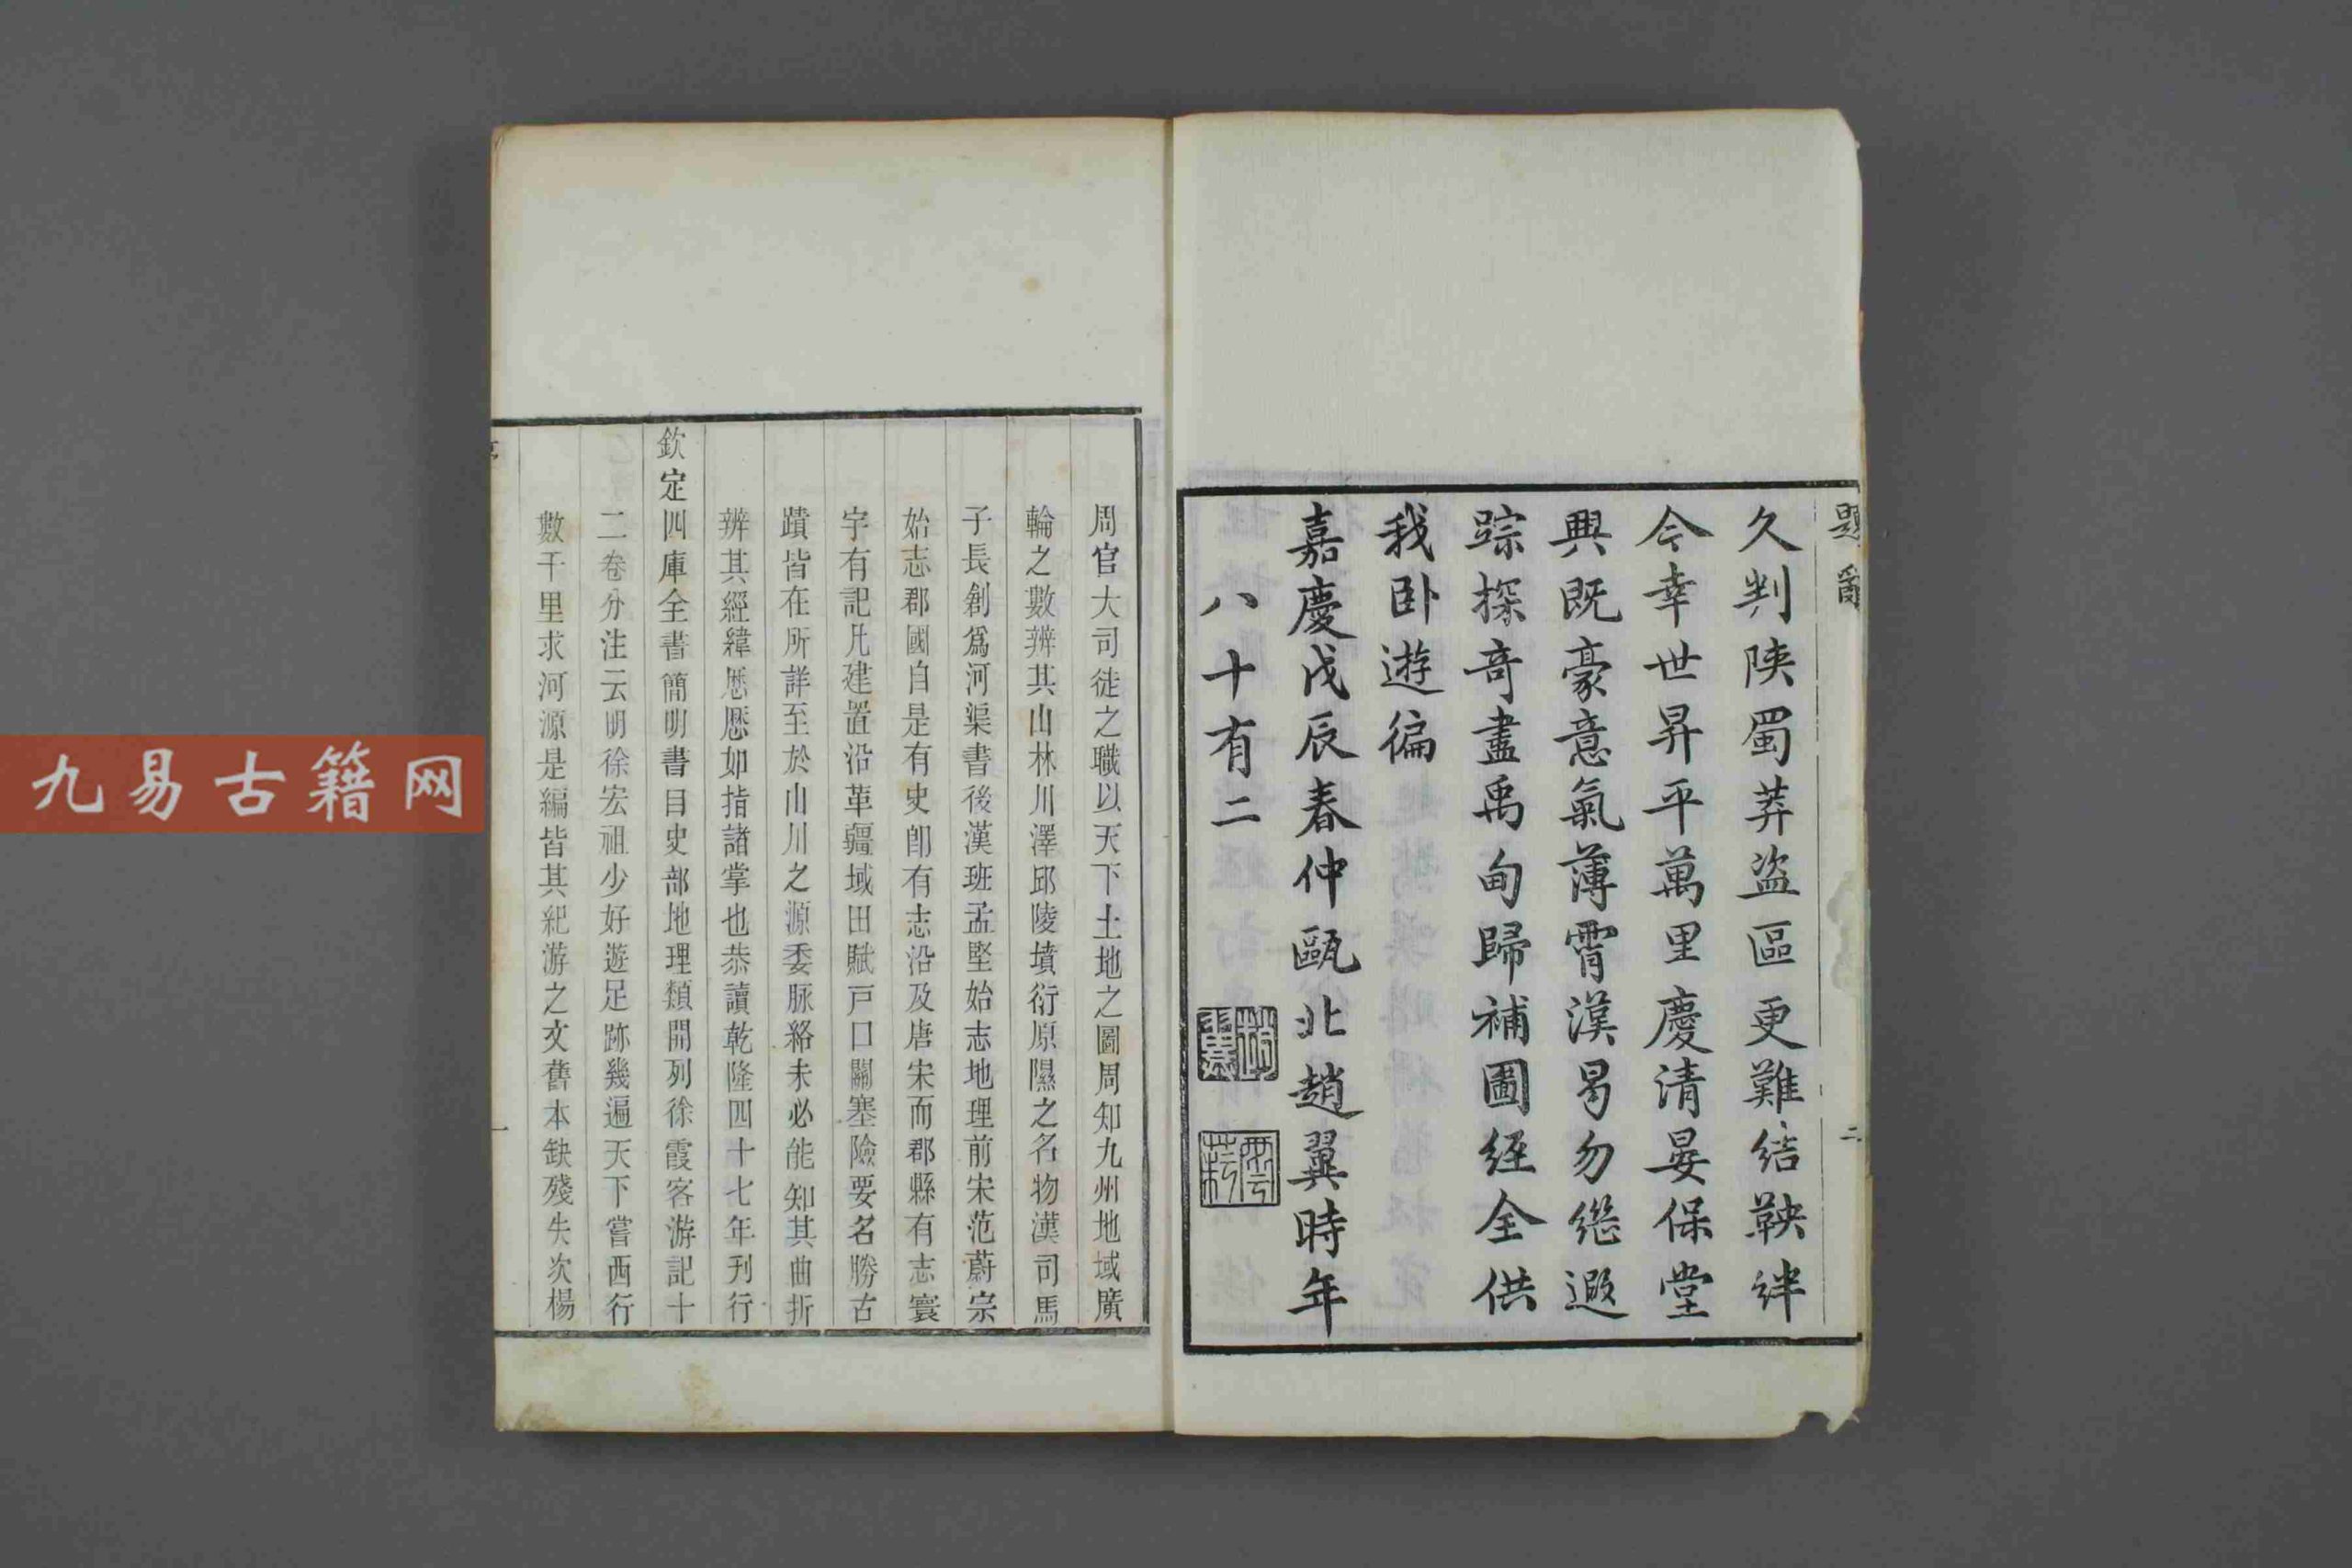 久判陝蜀莽盜區更難結鞅絆
今幸世昇平萬里慶清晏保堂
興既豪意氣薄霄漢曷勿繼遐
踪探奇盡禹甸歸補圖經全供
我卧遊徧
嘉慶戊辰春仲甌北趙翼時年
八十有二
趙翼
雲菘
二
周官大司徒之職以天下土地之圖周知九州地域廣
輪之數辨其山林川澤邱陵墳衍原隰之名物漢司馬
子長創爲河渠書後漢班孟堅始志地理前宋范蔚宗
始志郡國自是有史卽有志沿及唐宋而郡縣有志寰
宇有記凡建置沿革疆域田賦戸口關塞險要名勝古
蹟皆在所詳至於山川之源委脉絡未必能知其曲折
辨其經緯歷歷如指諸掌也恭讀乾隆四十七年刋行
欽定四庫全書簡明書目史部地理類開列徐霞客游記十
二卷分注云明徐宏祖少好遊足跡幾遍天下嘗西行
數千里求河源是編皆其紀游之文舊本缺殘失次楊
一
九易古籍网